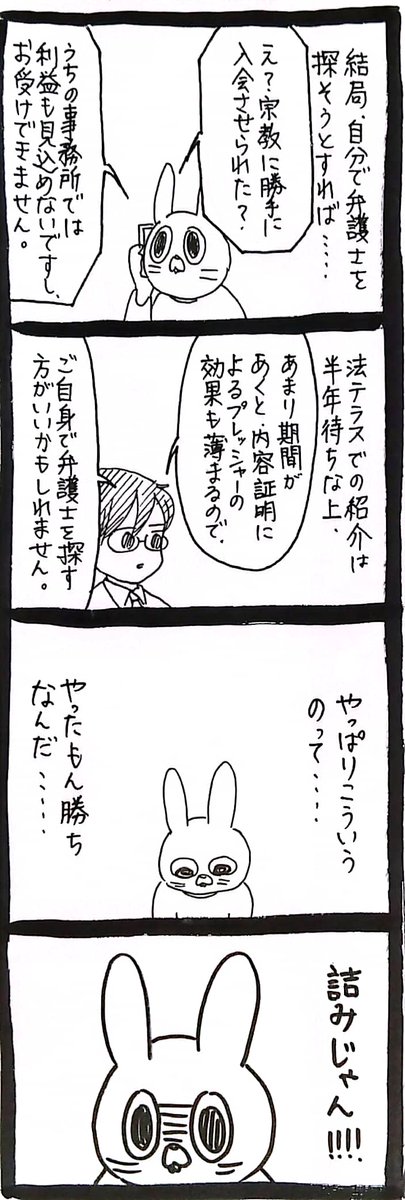 結局、自分で弁護士を
探そうとすれば……
え？宗教に勝手に
入会させられた？
うちの事務所では
利益も見込めないですし、
お受けできません。
法テラスでの紹介は
半年待ちな上、
あまり期間が
あくと内容証明に
よるプレッシャーの
効果も薄まるので、
ご自身で弁護士を探す
方がいいかもしれません。
やっぱりこういう
のって……
やったもん勝ち
なんだ……
詰みじゃん!!!!